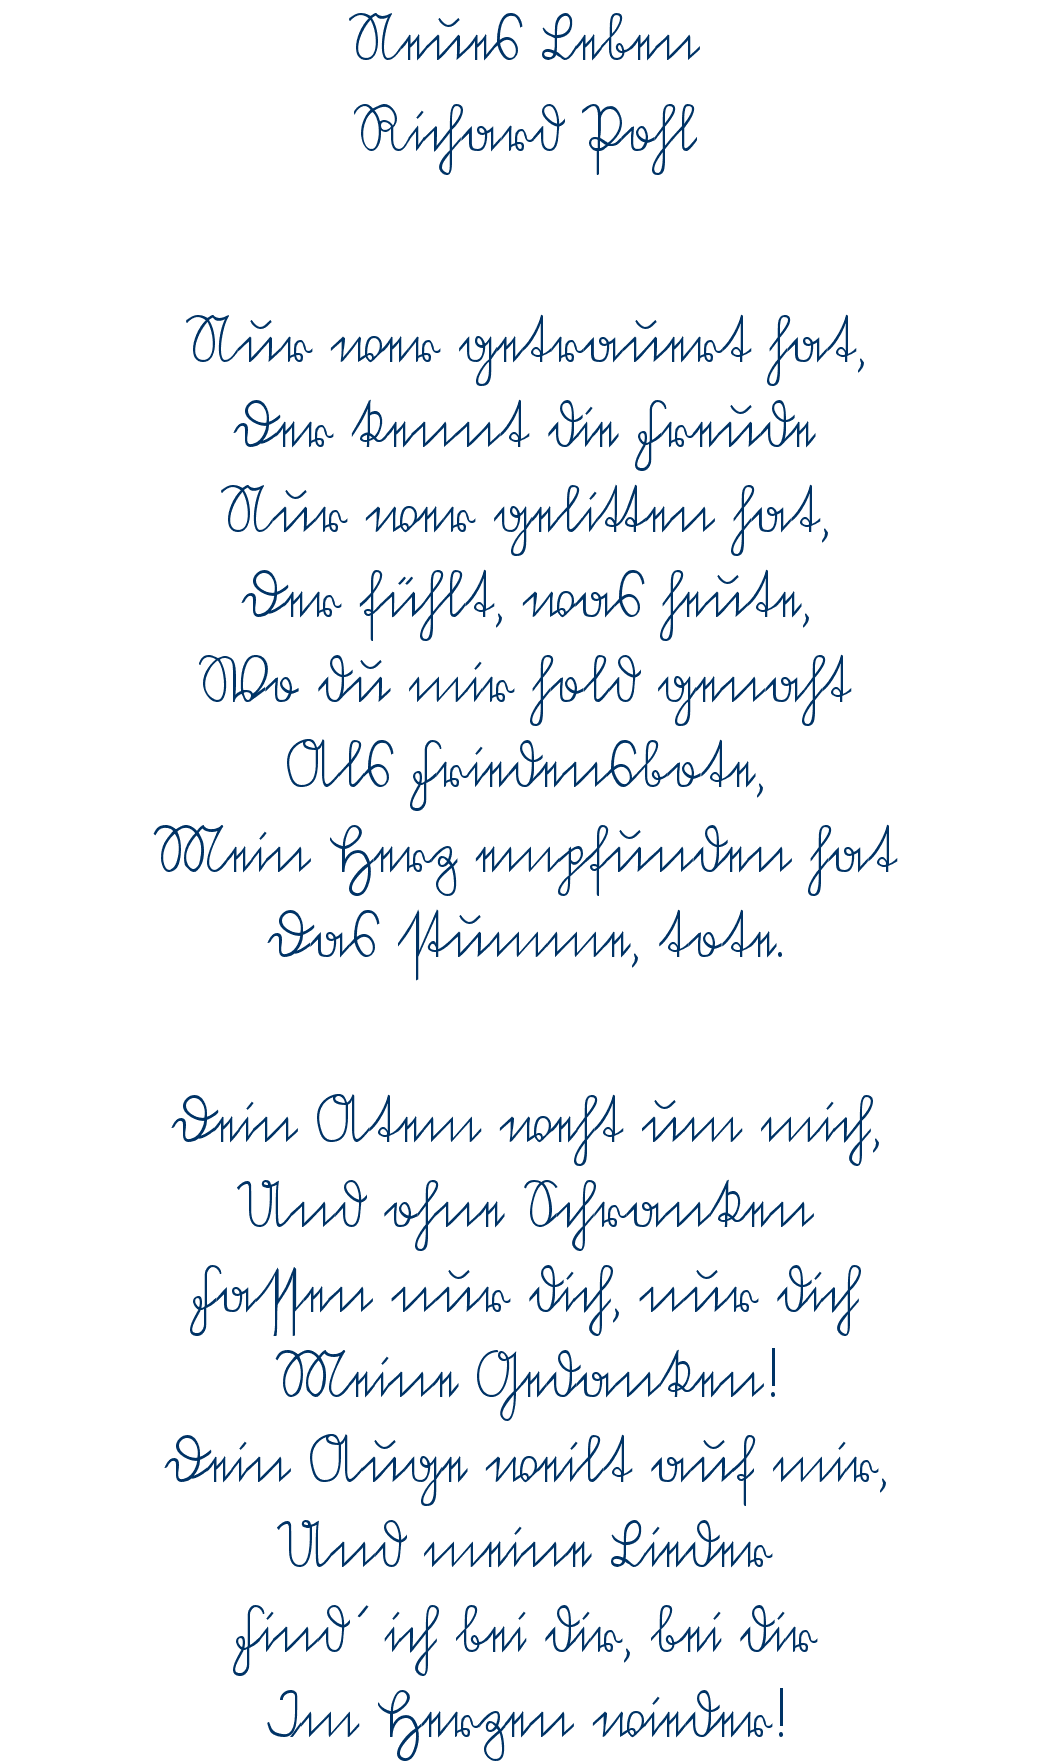 Neues Leben
Richard Pohl
Nur wer getrauert hat,
Der kennt die Freude
Nur wer gelitten hat,
Der fühlt, was heute,
Wo du mir hold genaht
Als Friedensbote,
Mein Herz empfunden hat
Das stumme, tote.
Dein Atem weht um mich,
Und ohne Schranken
Fassen nur dich, nur dich
Meine Gedanken!
Dein Auge weilt auf mir,
Und meine Lieder
Find´ ich bei dir, bei dir
Im Herzen wieder!